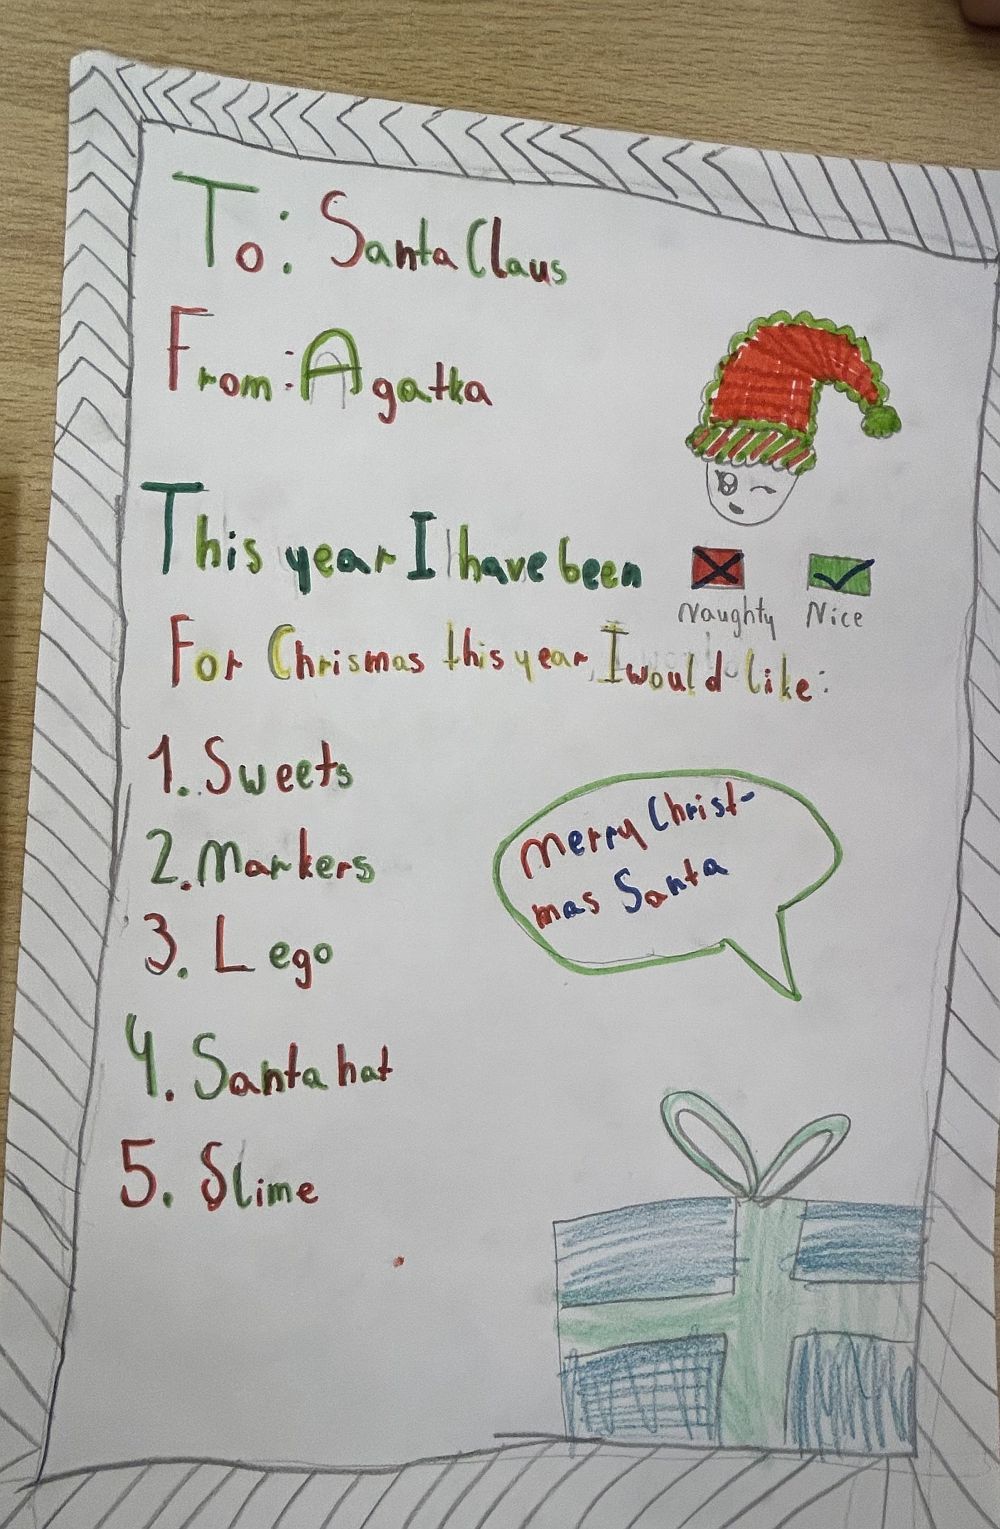 To: Santa Claus
From: Agatka
This year I have been
Naughty Nice
For Chrismas this year, I would like:
1. Sweets
2. Markers
3. Lego
4. Santa hat
5. Slime
Merry Christ-
mas Santa